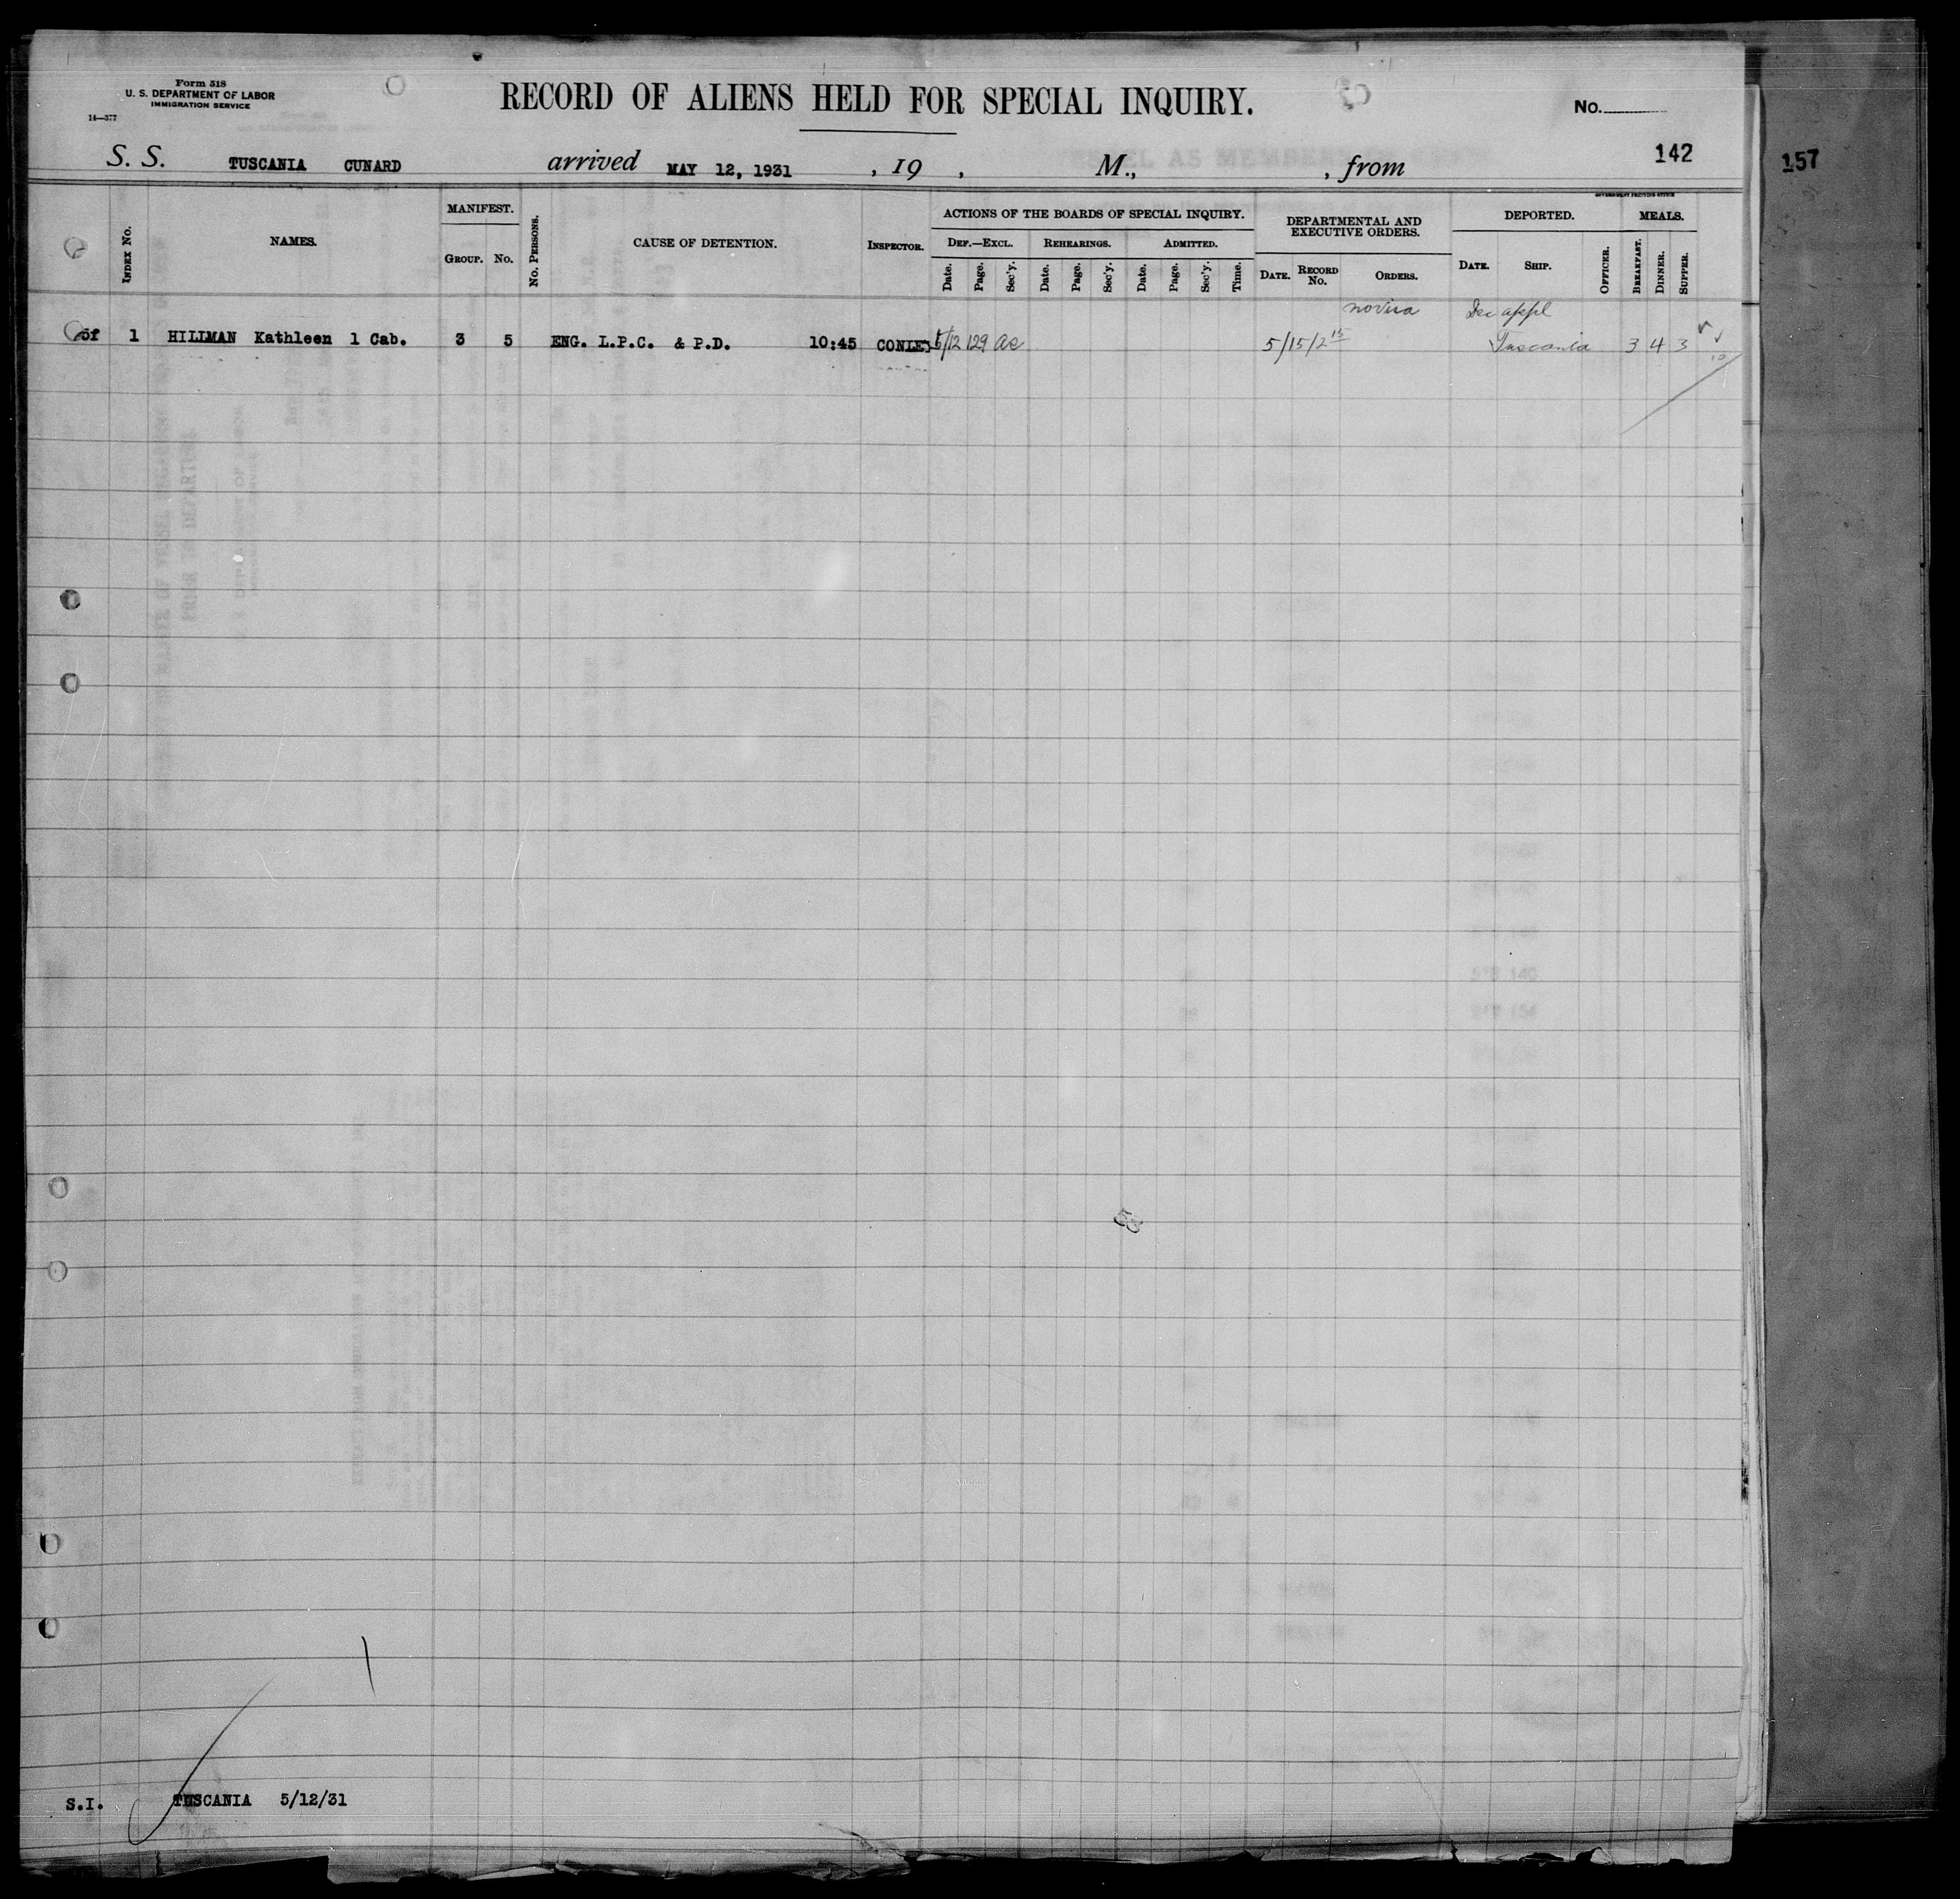 Form 518
U. S. DEPARTMENT OF LABOR
IMMIGRATION SERVICE
14—377
RECORD OF ALIENS HELD FOR SPECIAL INQUIRY.
No.
S. S. TUSCANIA CUNARD arrived MAY 12, 1931 , 19 , M., , from 142
157
GOVERNMENT PRINTING OFFICE
INDEX No. NAMES. MANIFEST. GROUP. No. No. PERSONS. CAUSE OF DETENTION. INSPECTOR. ACTIONS OF THE BOARDS OF SPECIAL INQUIRY. DEF.—EXCL. Date. Page. Sec'y. REHEARINGS. Date. Page. Sec'y. ADMITTED. Date. Page. Sec'y. Time. DEPARTMENTAL AND EXECUTIVE ORDERS. DATE. RECORD No. ORDERS. DEPORTED. DATE. SHIP. OFFICER. MEALS. BREAKFAST. DINNER. SUPPER.
no visa appl
of 1 HILLMAN Kathleen 1 Cab. 3 5 ENG. L.P.C. & P.D. 10:45 CONLEY 5/12 129 5/15/2 15 Tuscania 3 4 3
10
S.I. TUSCANIA 5/12/31